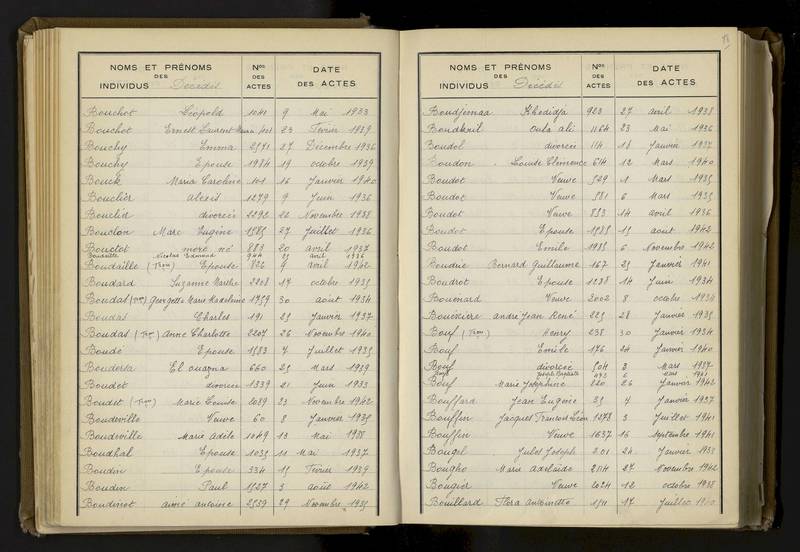 NOMS ET PRÉNOMS DES INDIVIDUS Décédés Nos DES ACTES DATE DES ACTES
Bouchot Léopold 1041 9 Mai 1933
Bouchot Ernest Laurent Marie 23 Février 1929
Bouchy Emma 2571 27 Décembre 1936
Bouchy Epouse 1984 19 octobre 1939
Bouck Maria Caroline 101 16 Janvier 1940
Bouclier alexis 1279 9 Juin 1936
Bouclier divorcée 2292 22 Novembre 1938
Bouclon Marc Eugène 1585 27 Juillet 1936
Bouclot mort né 883 20 avril 1937
Boudaille Nicolas Edmond 944 25 avril 1936
Boudaille Epouse 826 9 avril 1942
Boudard Suzanne Marthe 2208 17 octobre 1935
Boudas Georgette Marie Madeleine 1759 30 août 1934
Boudas Charles 191 25 Janvier 1937
Boudas Anne Charlotte 2207 26 Novembre 1940
Boudé Epouse 1583 7 Juillet 1935
Bouderja El ouazna 660 25 Mars 1939
Boudet divorcée 1339 21 Juin 1933
Boudet Marie Louise 2089 23 Novembre 1942
Boudeville Veuve 60 8 Janvier 1935
Boudeville Marie Adèle 1049 13 Mai 1938
Boudhal Epouse 1035 11 Mai 1937
Boudin Epouse 334 15 Février 1939
Boudin Paul 1527 3 août 1942
Boudinot aimé antoine 2539 29 Novembre 1935
NOMS ET PRÉNOMS DES INDIVIDUS Décédés Nos DES ACTES DATE DES ACTES
Boudjemaa Khedidja 923 27 avril 1938
Boudkril Oula Ali 1164 23 Mai 1936
Boudol divorcée 114 18 Janvier 1937
Boudon Louise Clémence 614 12 Mars 1940
Boudot Veuve 529 1 Mars 1935
Boudot Veuve 581 6 Mars 1935
Boudot Veuve 853 14 avril 1936
Boudot Epouse 1585 15 août 1942
Boudot Emile 1985 6 Novembre 1942
Boudrie Bernard Guillaume 167 25 Janvier 1941
Boudrot Epouse 1238 14 Juin 1934
Bouenard Veuve 2002 8 octobre 1934
Bouessière André Jean René 225 28 Janvier 1935
Bouf Henry 238 30 Janvier 1934
Bouf Emile 176 24 Janvier 1940
Bouf divorcée 504 2 Mars 1937
Bouf Joseph Baptiste 493 6 Mars 1941
Bouf Marie Joséphine 220 26 Janvier 1942
Bouffard Jean Eugène 35 4 Janvier 1937
Bouffin Jacques François Léon 1273 3 Juillet 1941
Bouffin Veuve 1637 16 Septembre 1941
Bougel Jules Joseph 201 24 Janvier 1938
Bougho Marie Adelaide 2114 27 Novembre 1942
Bougier Veuve 2024 12 octobre 1938
Bouillard Flora Antoinette 1511 17 Juillet 1940